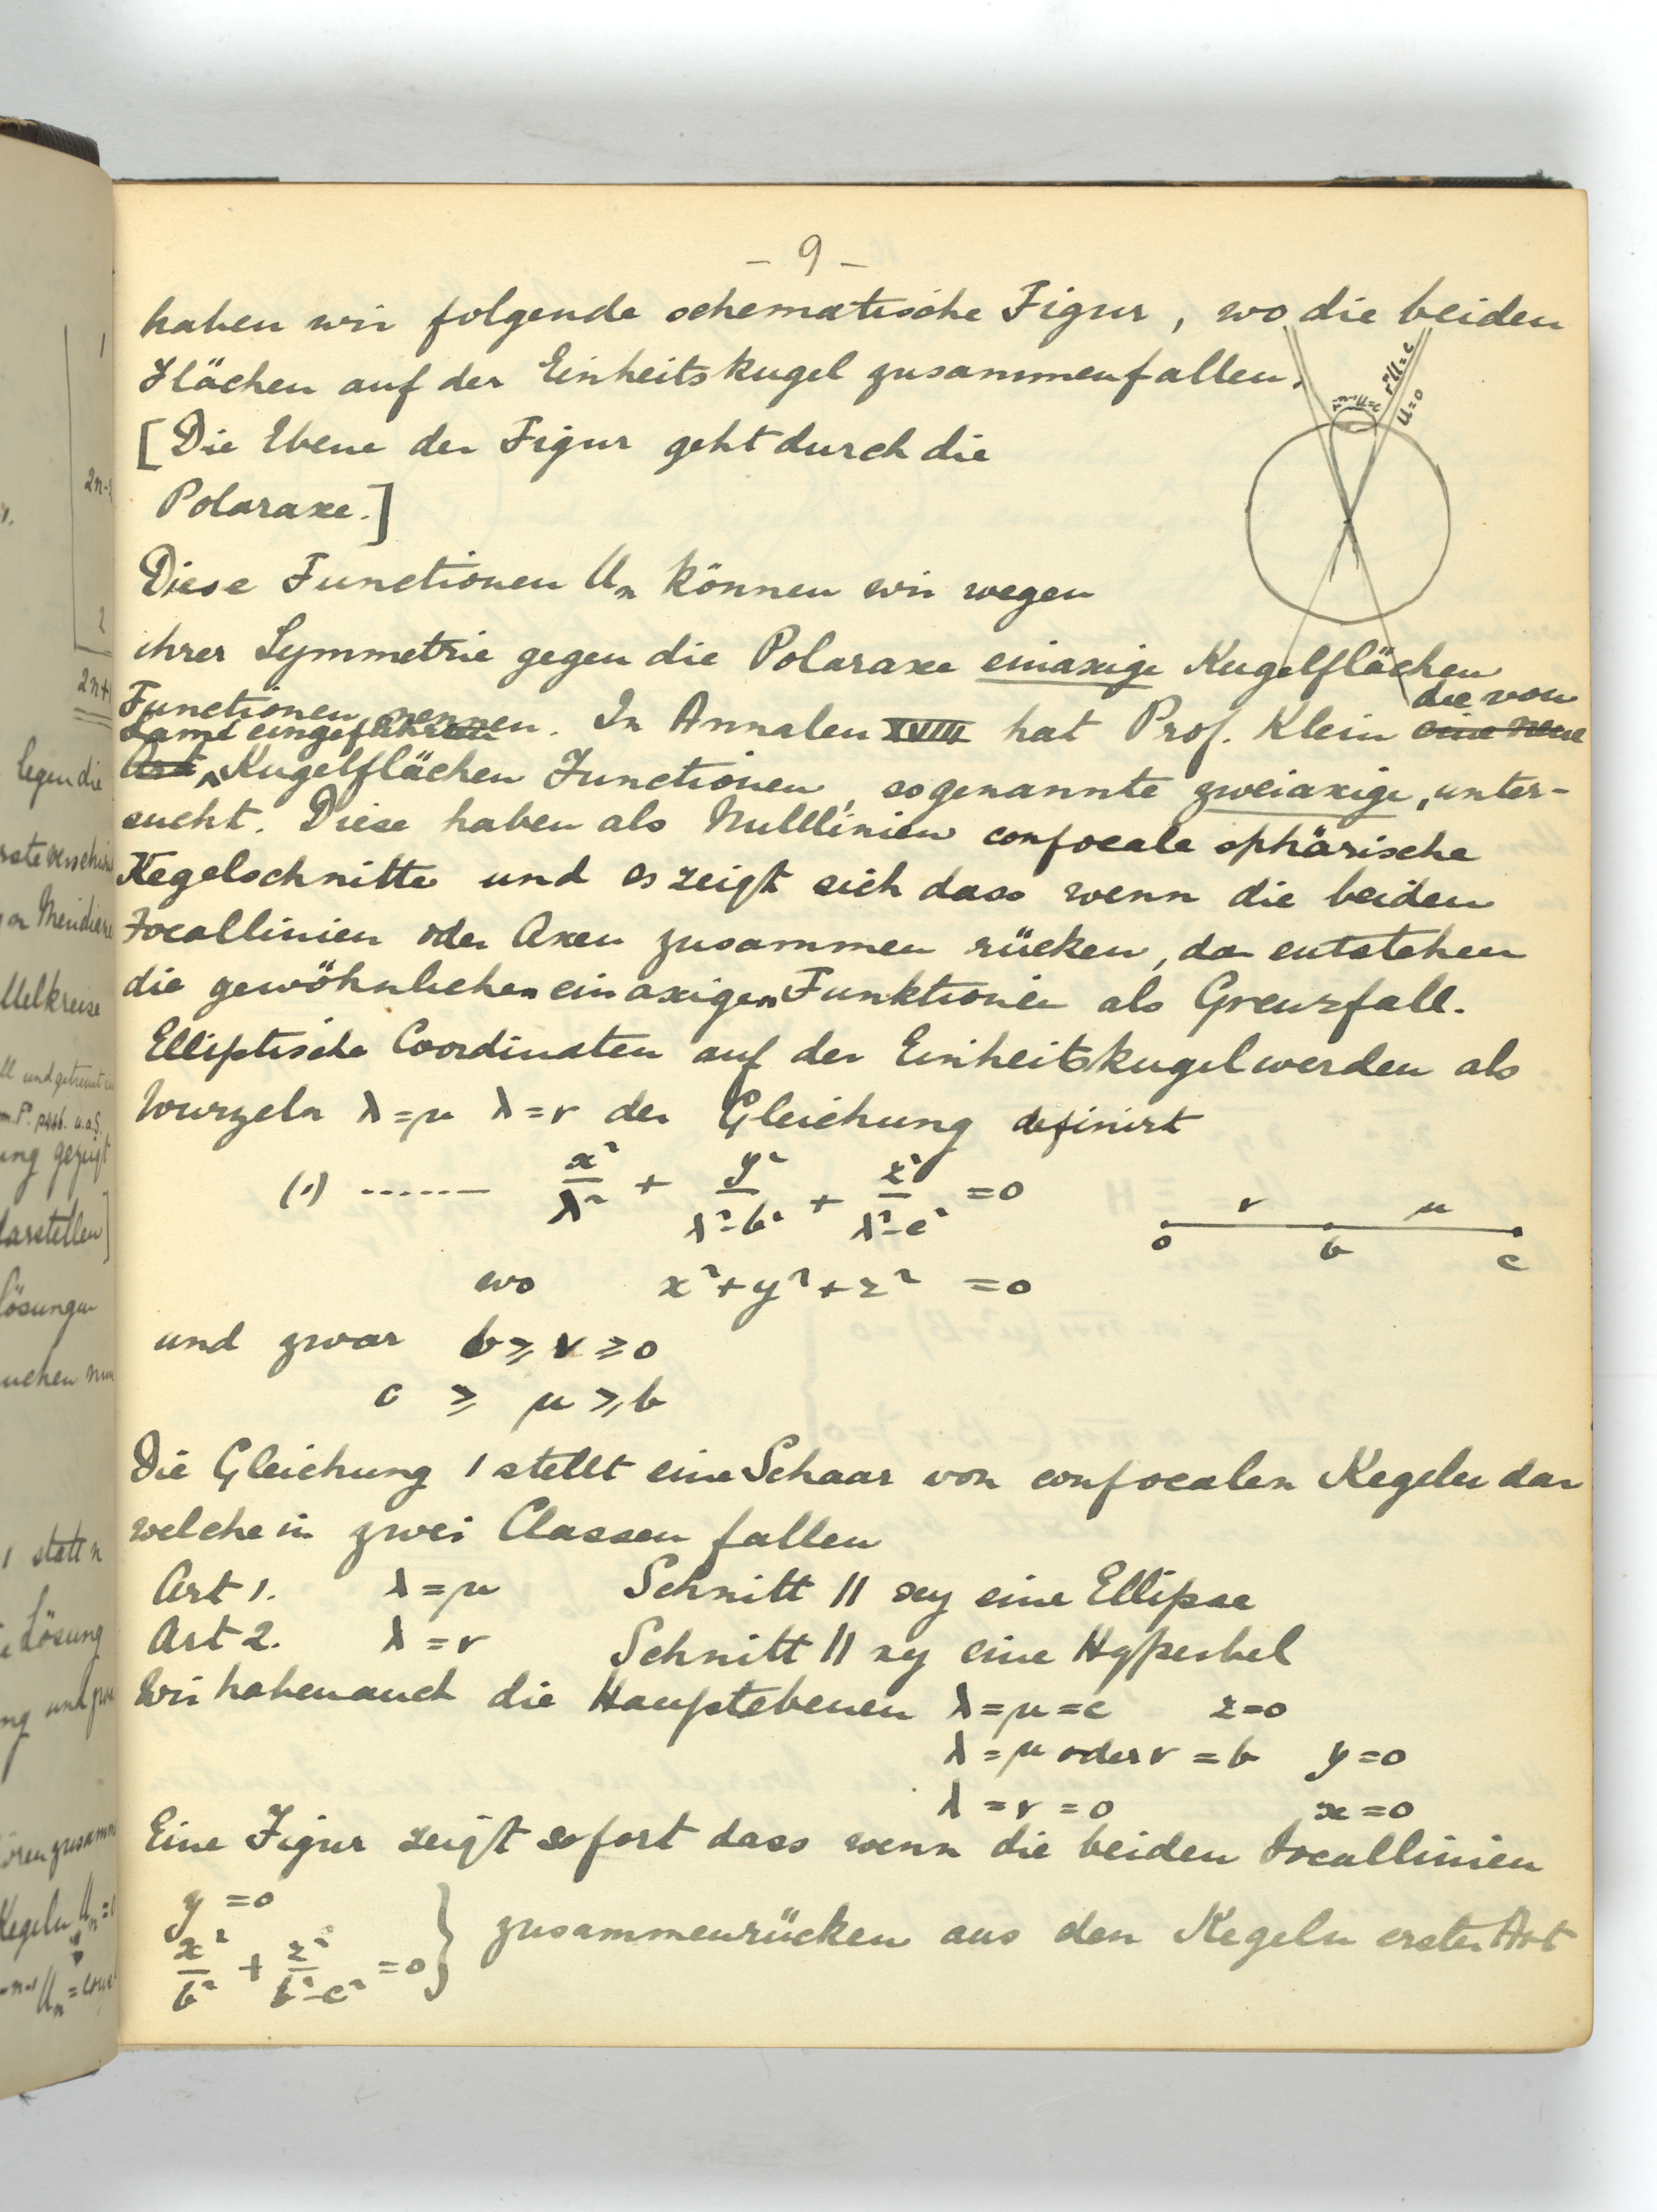 – 9 –
haben wir folgende schematische Figur, wo die beiden
Flächen auf der Einheitskugel zusammenfallen.
[Die Ebene der Figur geht durch die
Polaraxe.]
U=0
Diese Functionen Uₙ können wir wegen
ihrer Symmetrie gegen die Polaraxe einaxige Kugelflächen
Functionen nennen. In Annalen XVIII hat Prof. Klein die von eine neue
Lamé eingeführten
Art Kugelflächen Functionen, sogenannte zweiaxige, unter-
sucht. Diese haben als Nulllinien confocale sphärische
Kegelschnitte und es zeigt sich dass wenn die beiden
Focallinien oder Axen zusammen rücken, da entstehen
die gewöhnlichen einaxigen Funktionen als Grenzfall.
Elliptische Coordinaten auf der Einheitskugel werden als
Wurzeln λ=μ λ=ν der Gleichung definirt
(1) ------ x²/λ² + y²/λ²-b² + z²/λ²-c² =0
ν μ
o b c
wo x²+y²+z² =0
und zwar b ≥ ν ≥ 0
c ≥ μ ≥ b
Die Gleichung 1 stellt eine Schaar von confocalen Kegeln dar
welche in zwei Classen fallen
Art 1. λ=μ Schnitt || xy eine Ellipse
Art 2. λ=ν Schnitt || xy eine Hyperbel
Wir haben auch die Hauptebenen λ=μ=c z=0
λ=μ oder ν=b y=0
λ=ν=0 x=0
Eine Figur zeigt sofort dass wenn die beiden Focallinien
y=0
x²/b² + z²/b²-c² =0 } zusammenrücken aus den Kegeln erster Art
legen die
Meridiane
2n+1
Lösungen
Lösung
darstellen]